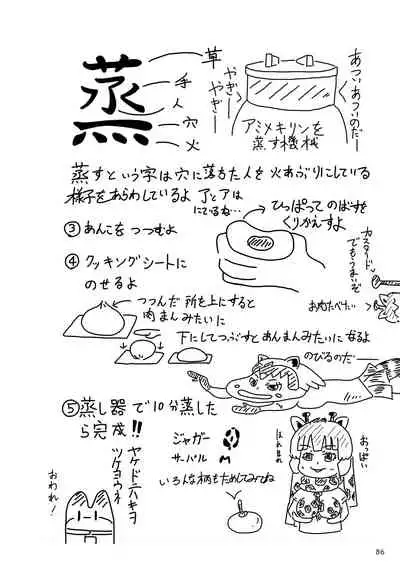 蒸
草
手
人
穴
火
やぎー
やぎー
あついあついのだー
アミメキリンを
蒸す機械
蒸すという字は穴に落ちた人を火あぶりにしている
様子をあらわしているよ
にているね…
ひっぱってのばすを
くりかえすよ
③ あんこをつつむよ
④ クッキングシートに
のせるよ
カスタード
でもうまいぞ
お肉たべたい
つつんだ所を上にすると
肉まんみたいに
下にしてつぶすとあんまんみたいになるよ
のびるのだー
⑤ 蒸し器で10分蒸した
ら完成!!
ジャガー
サーバル
いろんな柄もためしてみてね
ヤケドニハキヲ
ツケヨウネ
おわれ!
おっぱい
86